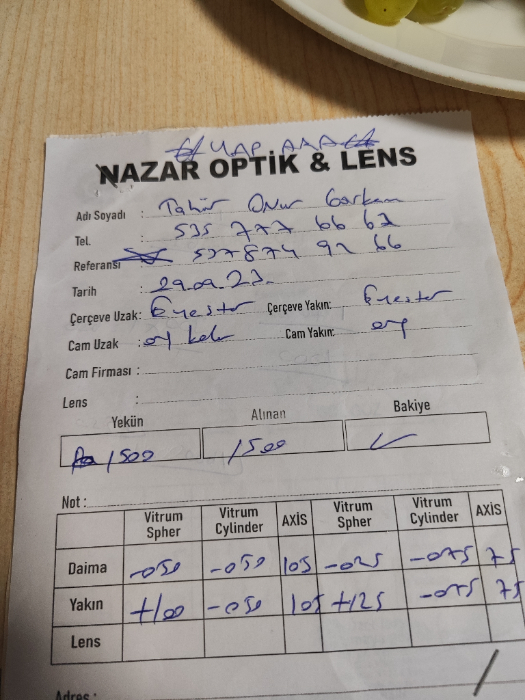 YAP
NAZAR OPTİK & LENS
Adı Soyadı : Tahir Onur
Tel. : 535 777 66 67
Referansı 537874 92 66
Tarih : 29.09.23.
Çerçeve Uzak: Çerçeve Yakın:
Cam Uzak : Cam Yakın:
Cam Firması :
Lens :
Yekün Alınan Bakiye
1500 1500
Not :
Vitrum Spher Vitrum Cylinder AXİS Vitrum Spher Vitrum Cylinder AXİS
Daima -050 -050 105 -025 -075 75
Yakın +100 -050 105 +125 -075 75
Lens
Adres :